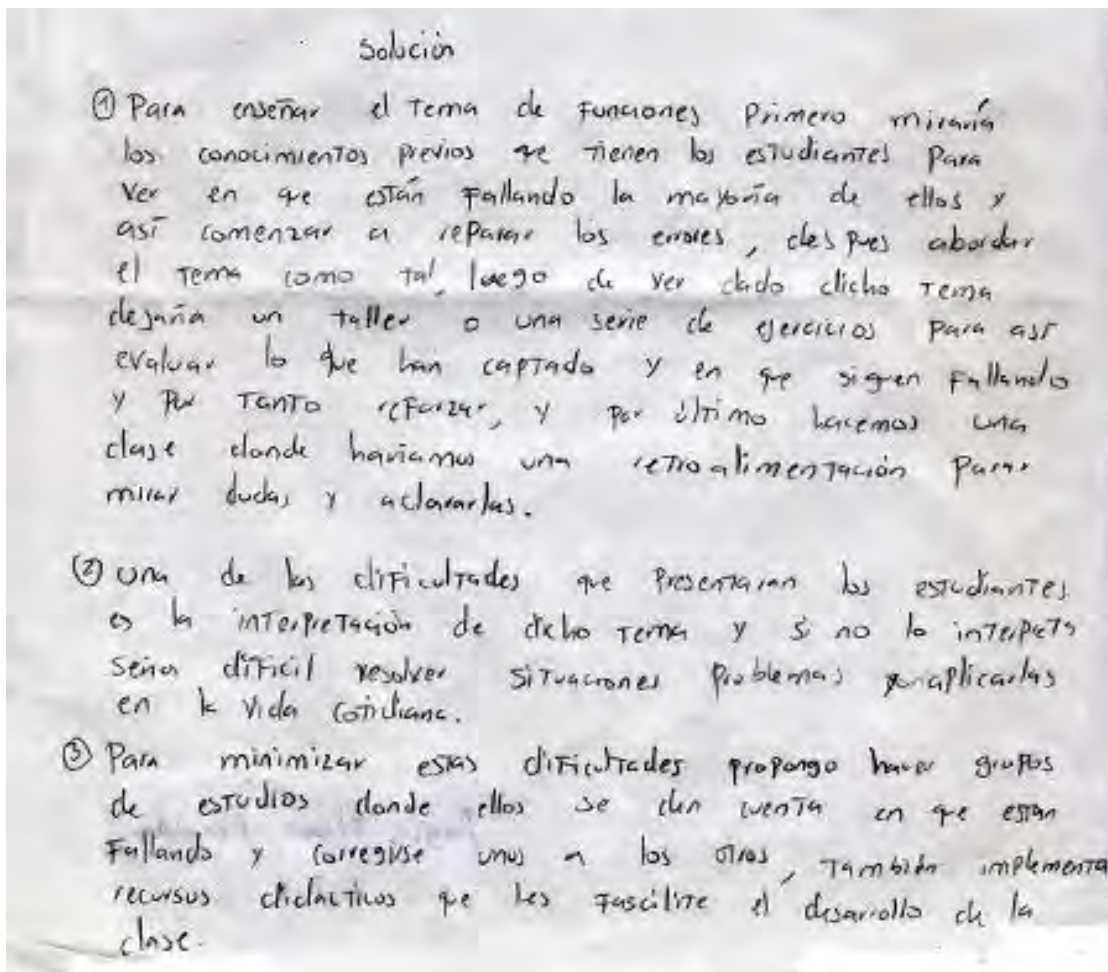 Solución
① Para enseñar el Tema de Funciones Primero miraría
los conocimientos previos qe tienen los estudiantes Para
ver en qe están Fallando la mayoría de ellos y
así comenzar a reparar los errores, des pues abordar
el Tema como tal, luego de ver dado dicho Tema
dejaría un taller o una serie de ejercicios Para así
evaluar lo que han captado y en qe siguen Fallando
y Por Tanto reforzar, y por último hacemos una
clase donde hariamos una retroalimentación Para
mirar dudas y aclararlas.
② una de las dificultades que Presentaran los estudiantes
es la interpretación de dicho Tema y si no lo interpreta
seria difícil resolver situaciones Problemas aplicarlas
en la vida cotidiana.
③ Para minimizar estas dificultades propongo hacer grupos
de estudios donde ellos se den cuenta en qe estan
Fallando y corregirse unos a los otros, También implementa
recursos didacticos qe les Fascilite el desarrollo de la
clase.